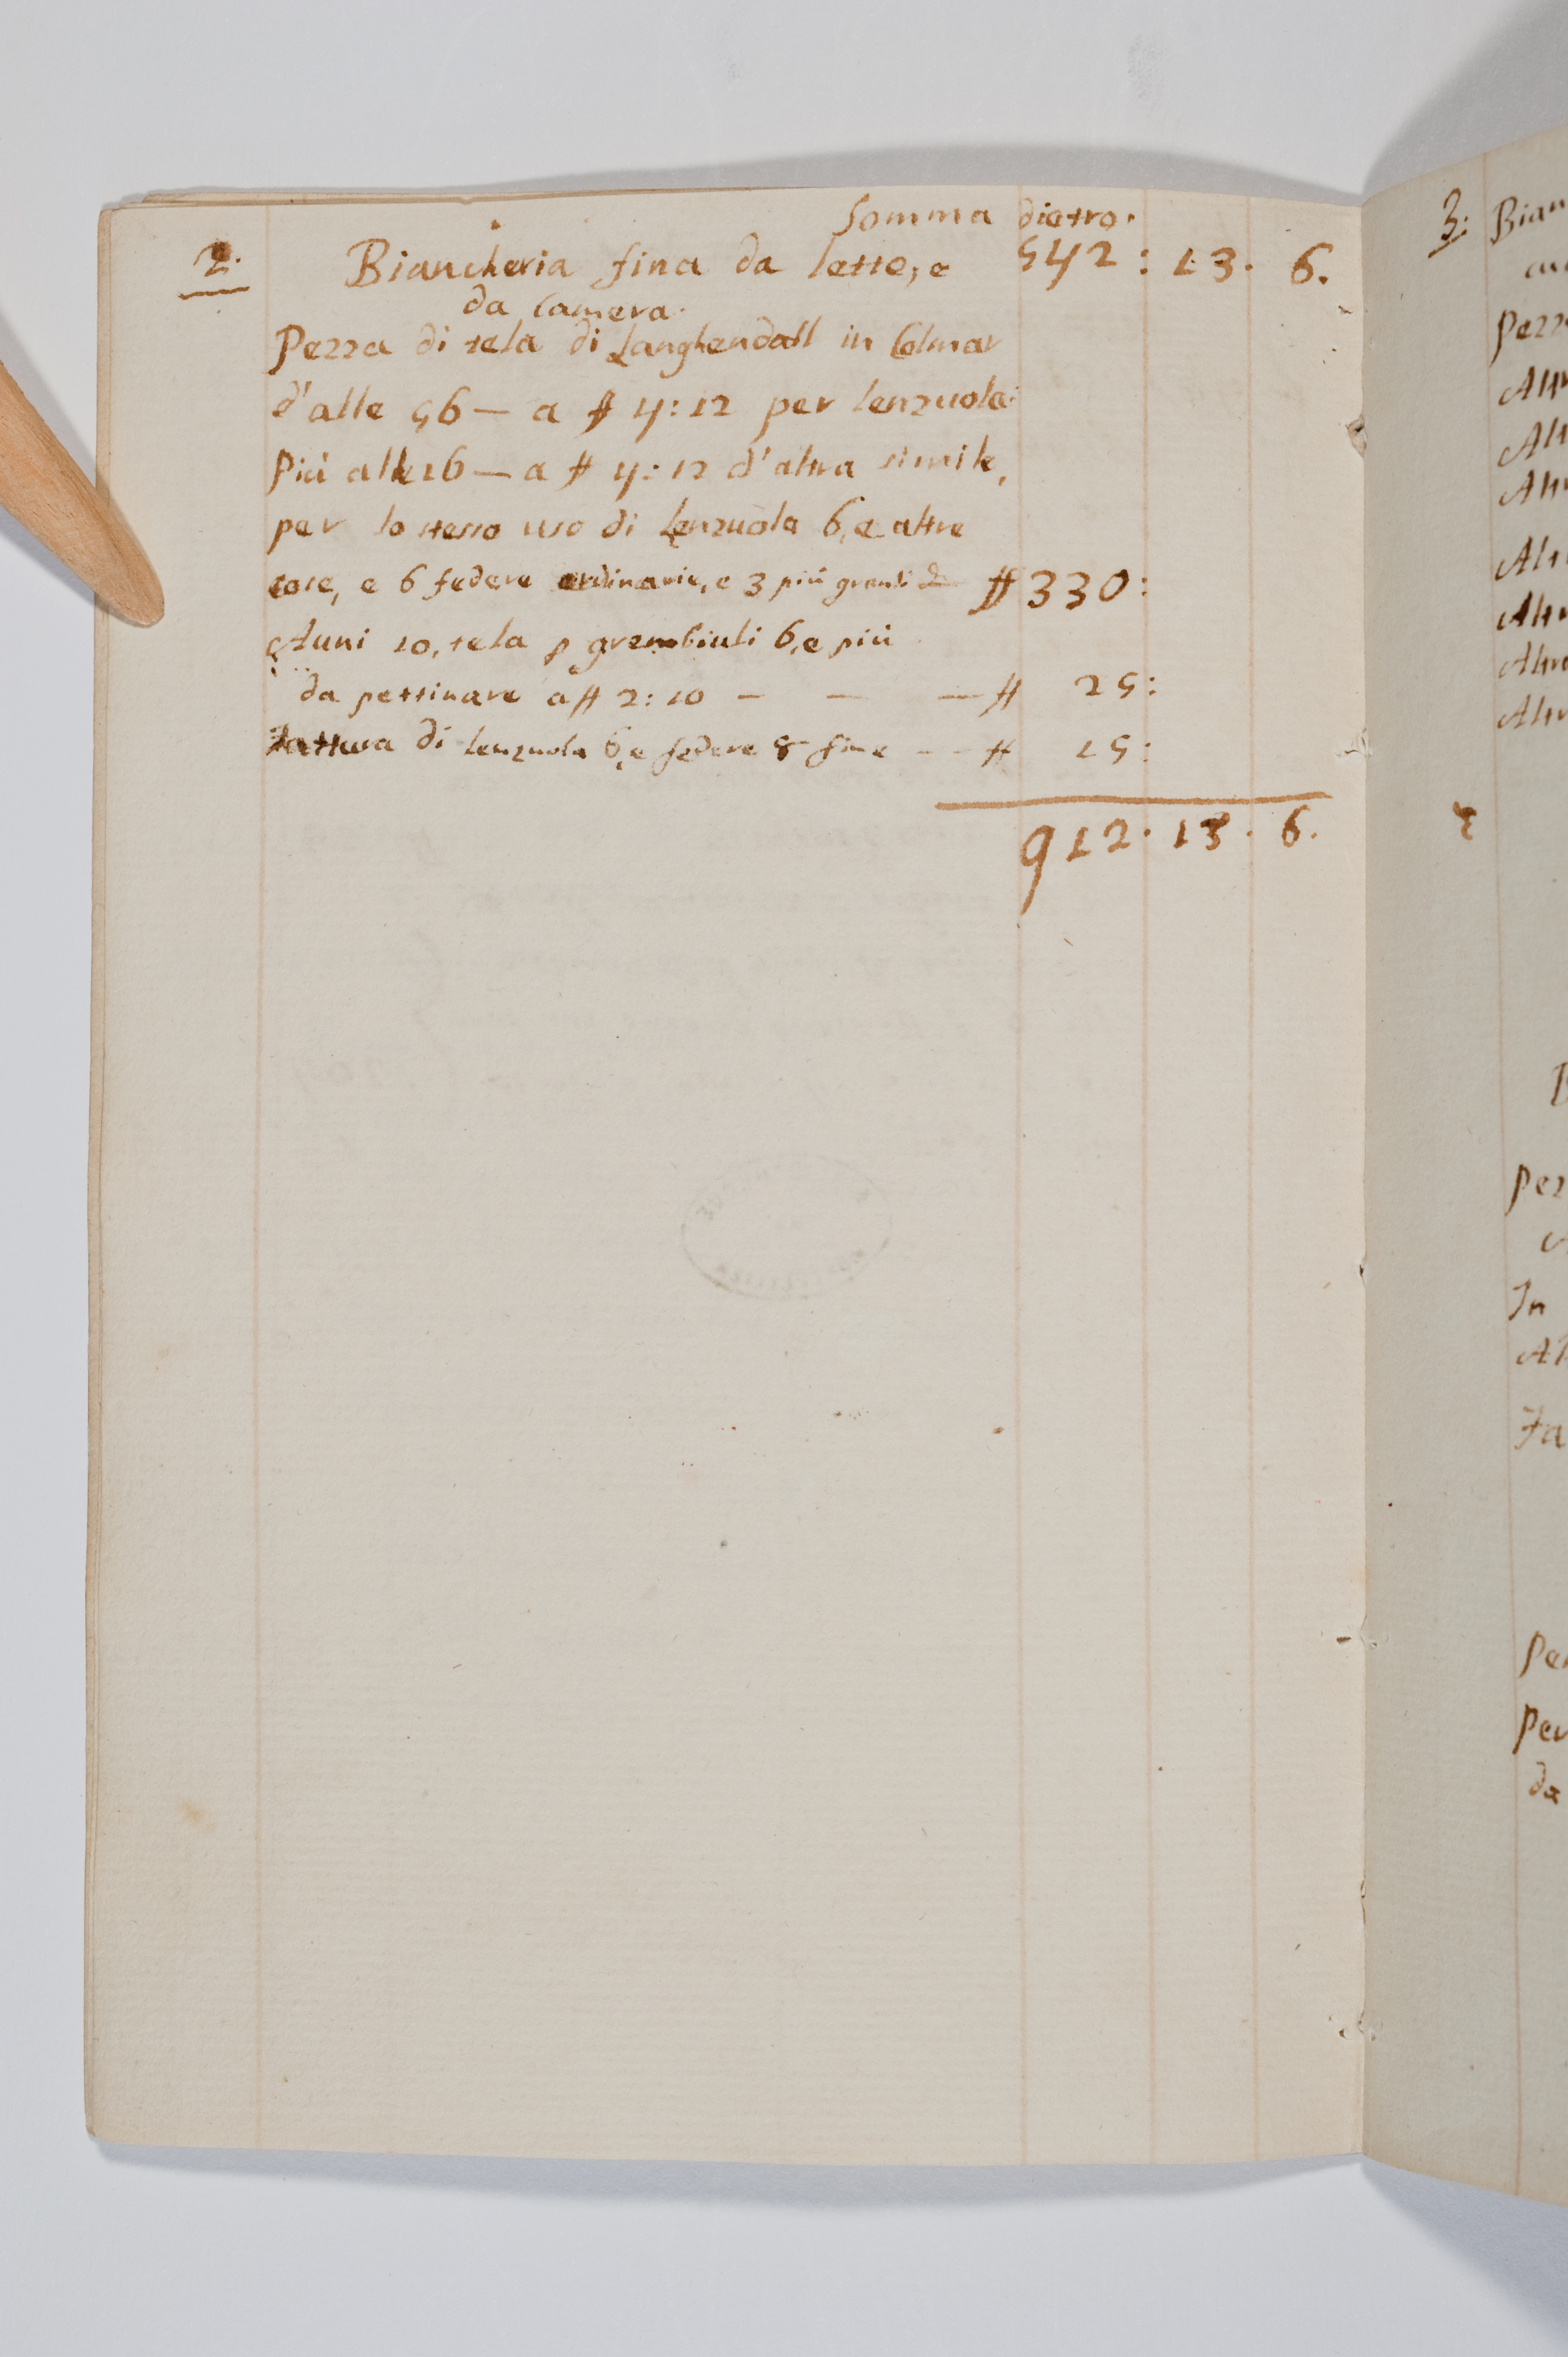 Somma dietro.
2. Biancheria fina da letto, e 542: 13. 6.
da Camera.
Pezza di tela di Langhendall in Colmar
d'alle 56 — a # 4:12 per lenzuola:
Più alle 16 — a # 4:12 d'altra simile,
per lo stesso uso di Lenzuola 6, e altre
cose, e 6 federe ordinarie, e 3 più grandi # 330:
Auni 10, tela p grembiuli 6, e più
da pettinare a # 2:10 — — — # 25:
Fattura di lenzuola 6, e federe 8 fine - - # 15:
912. 13. 6.
3. Bian
Pezz
Altr
Alt
Altr
Altr
Altr
Altro
Altr
Pez
In
Al
Fa
Per
da